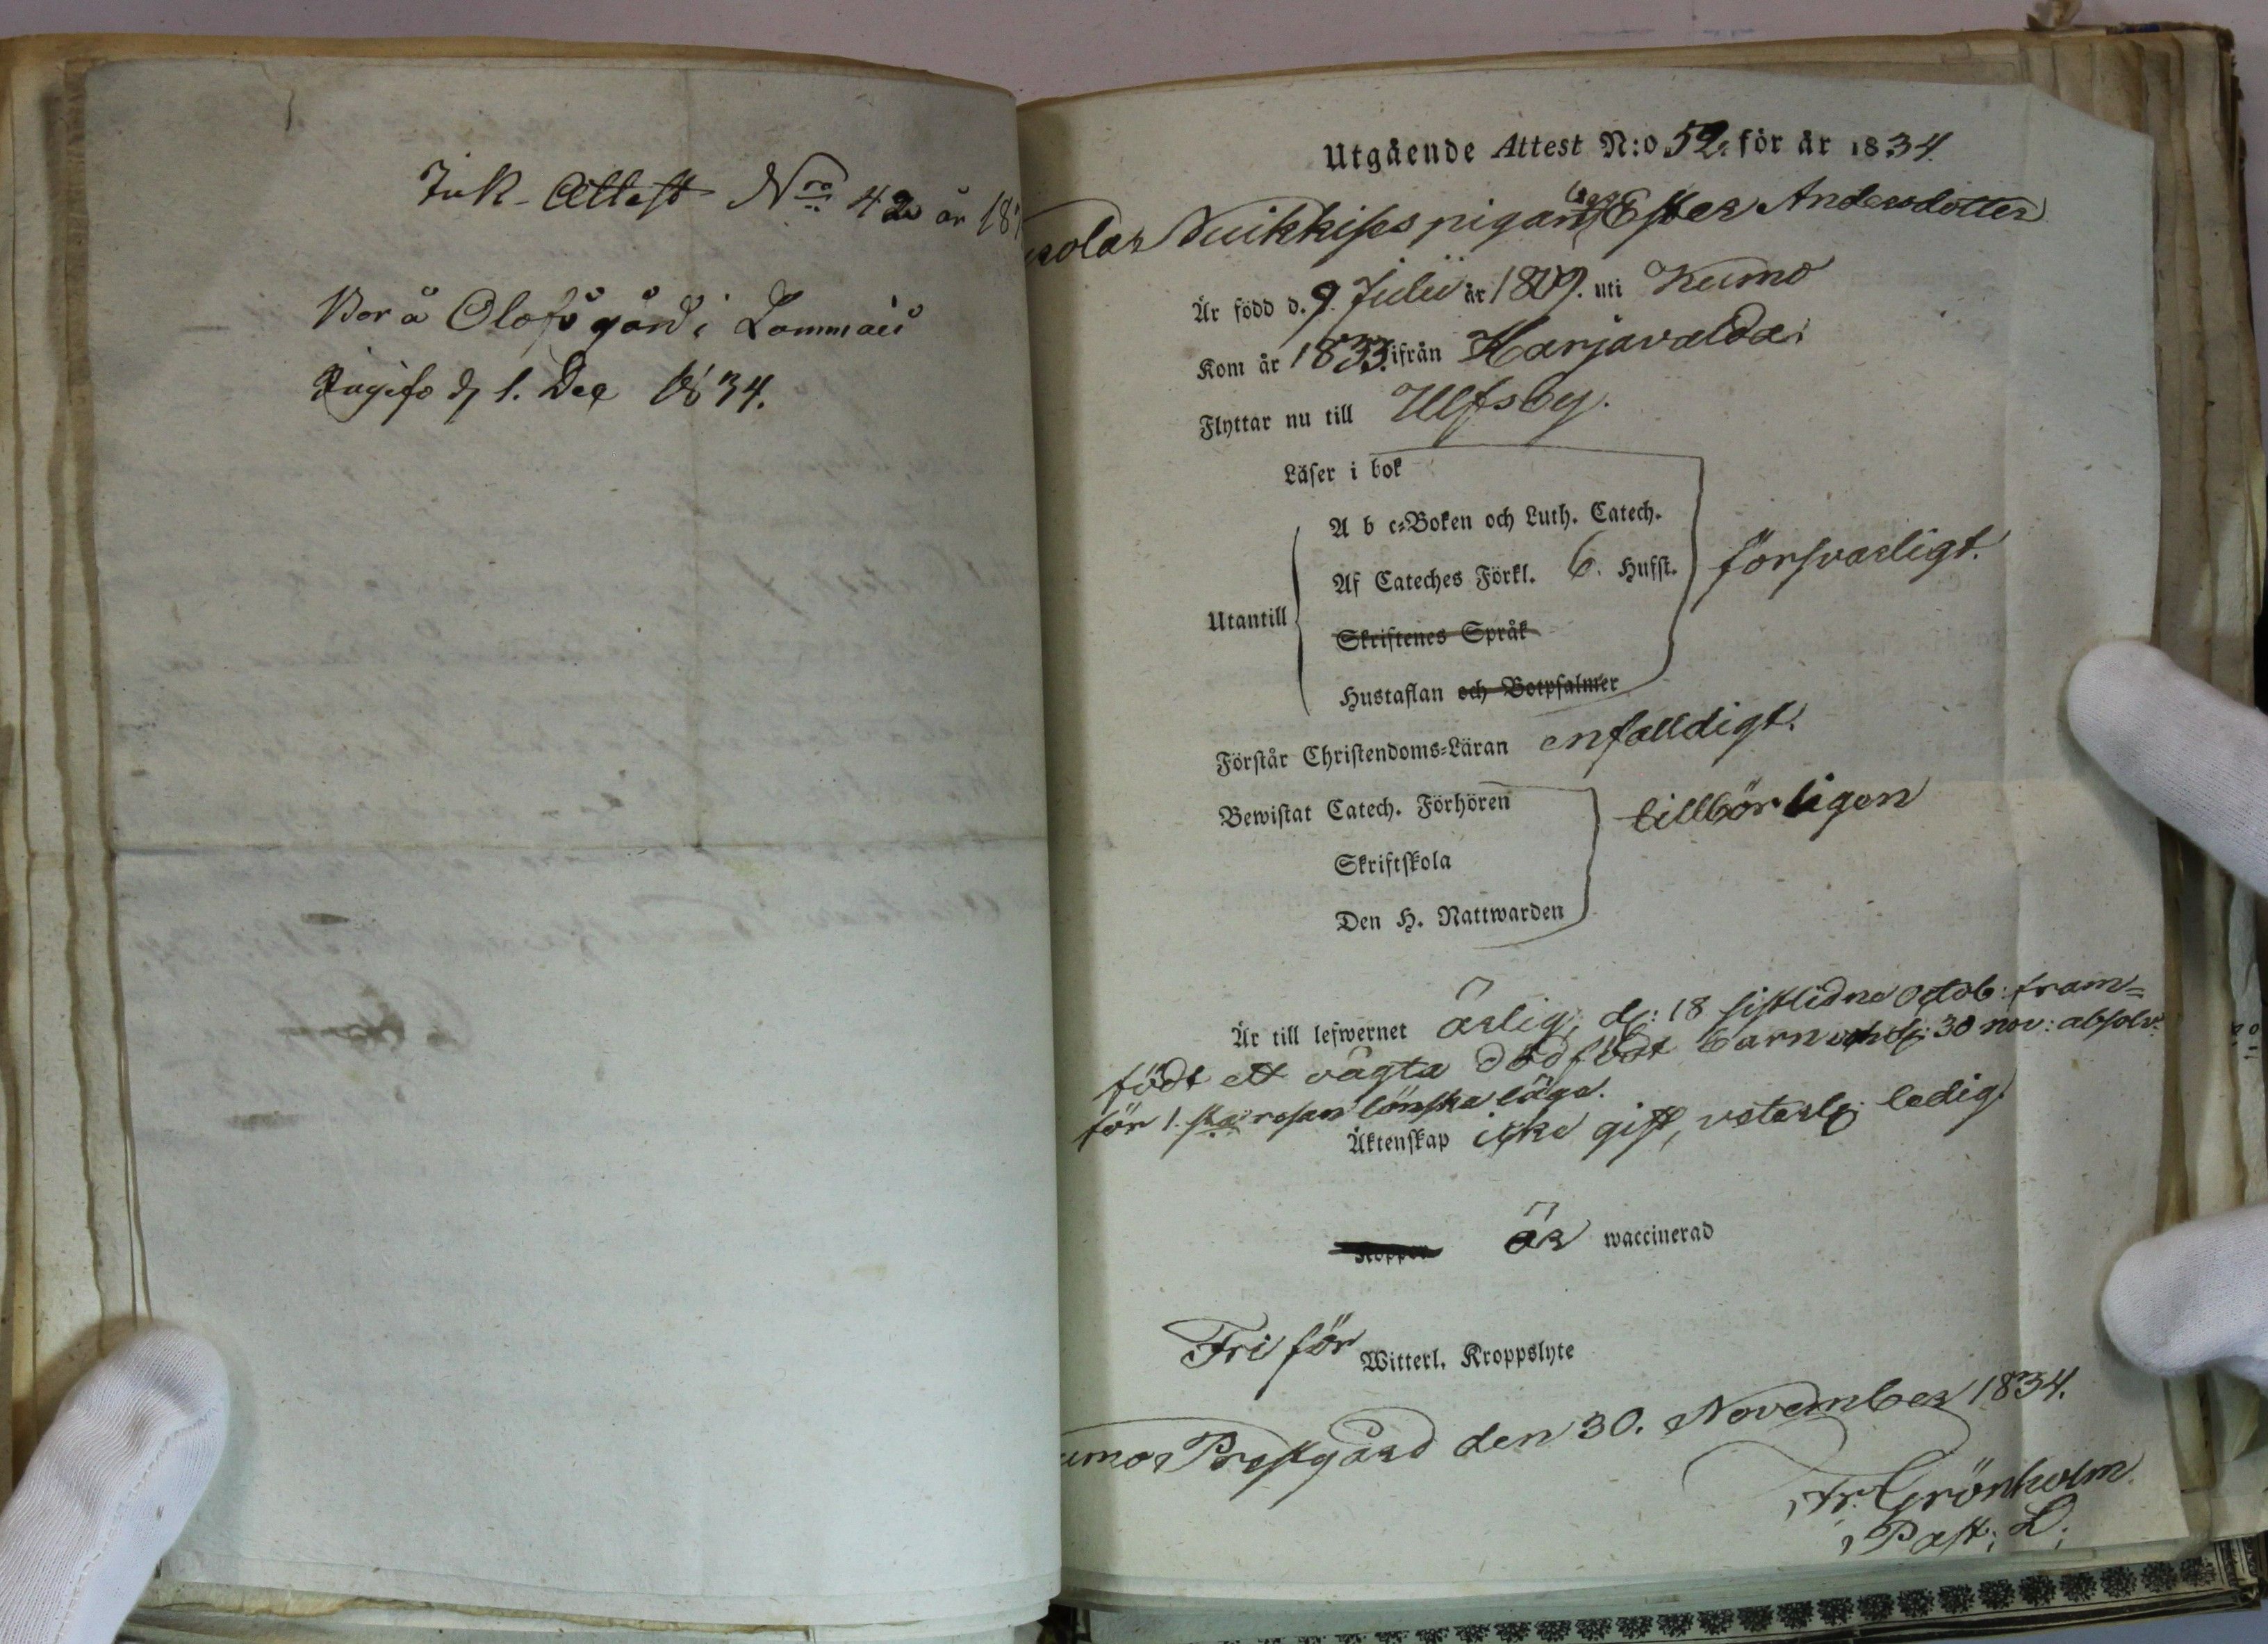 Ink. Attest Nro 42 år 18
Bor å Olofsgård i Lammais
Ingifs d. 1. Dec 1834.
Utgående Attest N:o 52. för år 1834.
pigan Ester Andersdotter
Är född d. 9. Julii år 1809. uti Kumo
Kom år 1833. ifrån Harjavalda.
Flyttar nu till Ulfsby.
Läser i bok
A b c-Boken och Luth. Catech.
Af Cateches Förkl. 6. Hufst. försvarligt.
Utantill
Skriftenes Språk
Hustaflan och Botpsalmer
Förstår Christendoms-Läran enfalldigt.
Bewistat Catech. Förhören tillbörligen
Skriftskola
Den H. Nattwarden
Är till lefwernet ärlig, d: 18 sistlidne Octob: fram-
födt ett oägta dödfödt barn och d: 30 nov: absolv:
för 1. sta resan lönska läge.
Äktenskap icke gift, veterl: ledig.
Koppor är waccinerad
Fri för Witterl. Kroppslyte
umo Prestgård den 30. November 1834.
Fr. Grönholm
Past: L: